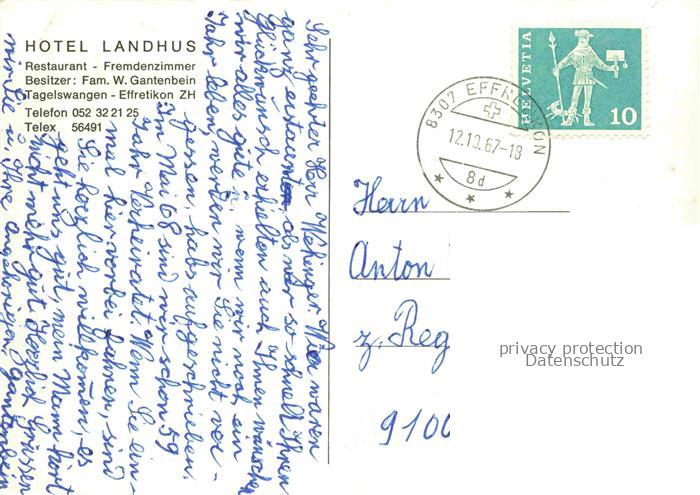 HOTEL LANDHUS
Restaurant - Fremdenzimmer
Besitzer: Fam. W. Gantenbein
Tagelswangen - Effretikon ZH
Telefon 052 32 21 25
Telex 56491
HELVETIA
10
8307 EFFRETIKON
12.10.67-18
8d
Sehr geehrter Herr Wir waren
ganz erstaunt als wir so schnell Ihren
Glückwunsch erhielten auch Ihnen wünschen
wir alles gute u. wenn wir noch ein
Jahr leben, werden wir Sie nicht ver-
gessen, habs aufgeschrieben.
Im Mai 68 sind wir schon 59
Jahr Verheiratet. Wenn Sie ein-
mal hier vorbei fahren, sind
Sie herzlich willkommen, es
geht uns gut, mein Mann hört
nicht mehr gut. Herzlich Grüssen
wir Sie u. Ihre angehörigen Gantenbein
Herrn
Anton
z. Reg
9100
privacy protection
Datenschutz